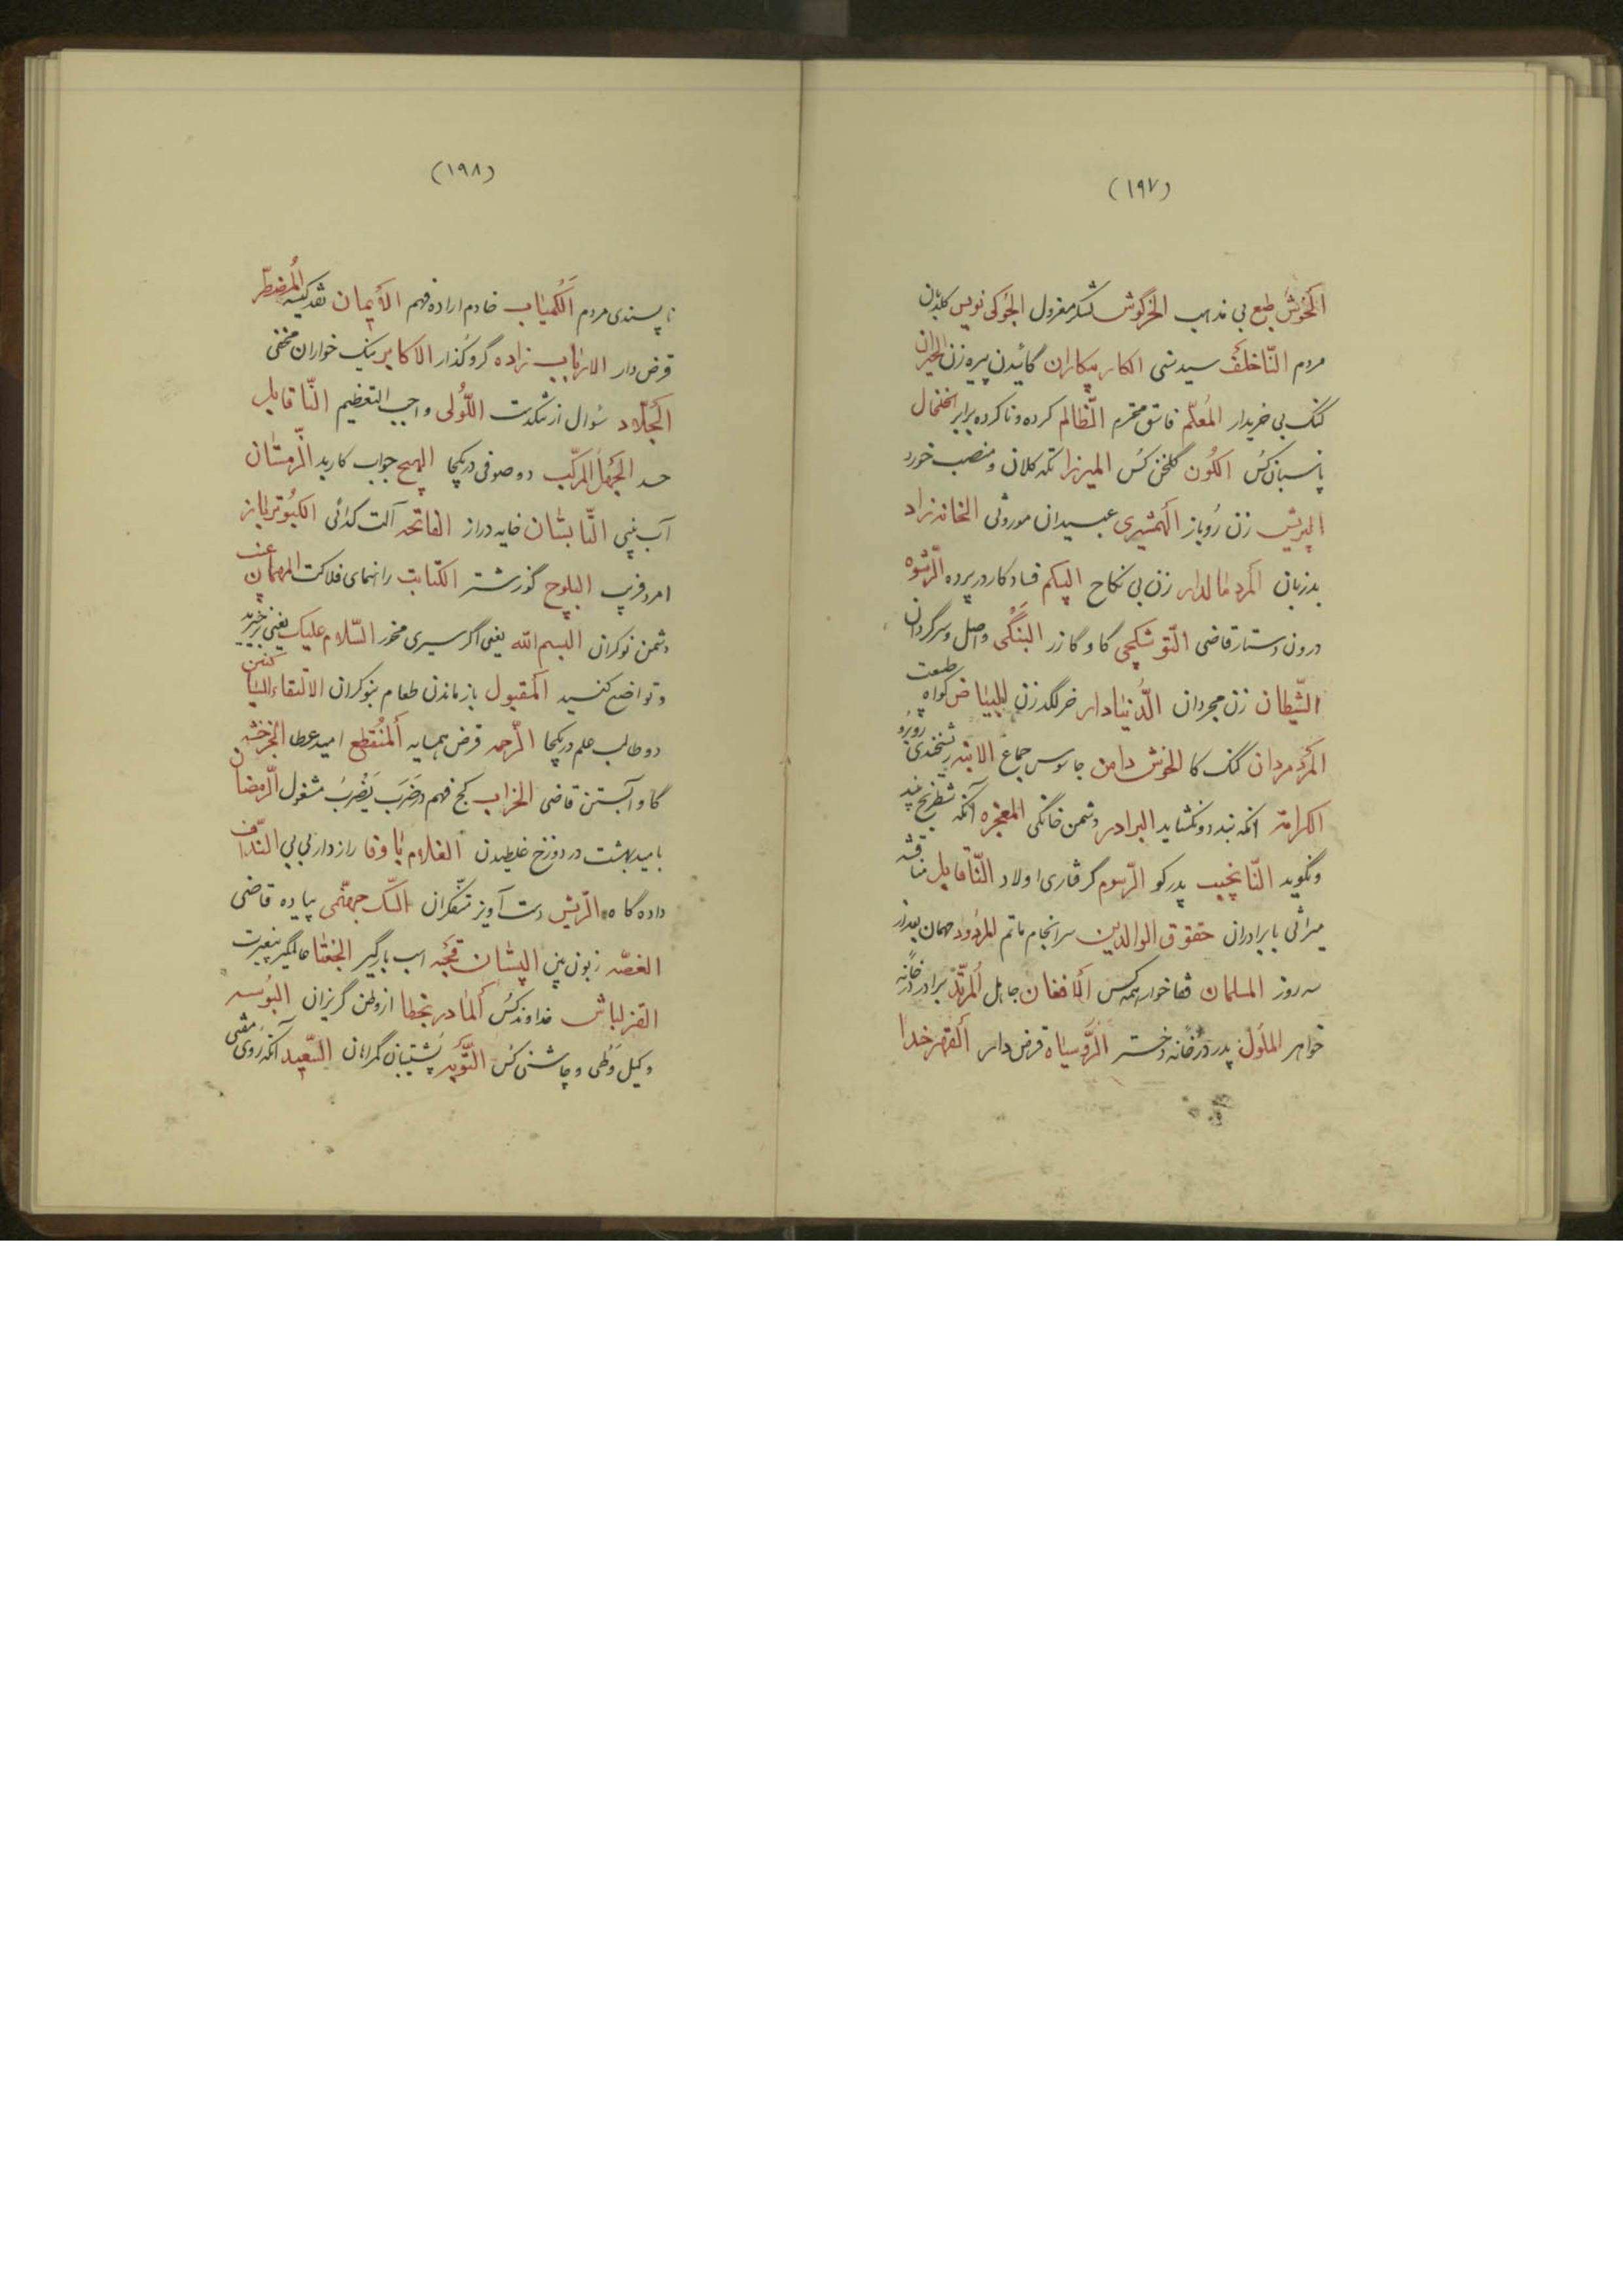 (۱۹۷)
الخوش طبع بی مذهب الخرگوش لشکر معزول الچوکی نویس کلیدان
مردم النّاخلف سید سنی الکار بیکاران گائیدن پیره زن الحیران
کنک بی خریدار المُعلّم فاسق محترم الظّالم کرده و ناکرده برابر الخلخال
پاسبان کُس الکُون گلخن کُس المیرزا تکه کلان و منصب خورد
البریش زن رُوباز الهمشیری عبسیدان موروثی الخانه زاد
بدزبان المرد مالدار زن بی نکاح البیکم فساد کار در پرده الرّشوه
درون دستار قاضی التّوشکچی گاو گازر البنگی واصل و سرگردان
الشّیطان زن مجردان الدُّنیادار خر لگدزن البیاض گواه طبیعت
المرد مردان کنک کا الخوش دامن جاسوس جماع الابنه ریشخندی روبرو
الکرامة آنکه نبندد و نگشاید البرادر دشمن خانگی المعجزه آنکه شطرنج بیند
ونگوید النّانجیب پدر کو الرّسوم گرفتاری اولاد النّاقابل مناقشه
میراثی با برادران حقوق الوالدین سرانجام ماتم المردود مهمان بعد از
سه روز المسلمان قفا خوار همه کس الافغان جاهل المرتدّ برادر در خانه
خواهر الملول پدر در خانه دختر الرُّوسیاه قرض دار القهر خدا
(۱۹۸)
ناپسندی مردم الکمیاب خادم اراده فهم الایمان نقد کیسه المُضطرّ
قرض دار الارباب زاده گرو گذار الاکابر بنک خواران مخفی
الجلّاد سُوال از تنگدست اللُّولی واجب التعظیم النّاقابل
حسد الجهل المرکّب دو صوفی در یکجا الهیچ جواب کاربد الزّمستان
آب بینی التّابستان خایه دراز الفاتحه آلت گدائی الکبُوترباز
امرد فریب البلوچ گوز شتر الکتابت راهنمای فلاکت المهمان عنف
دشمن نوکران البسم الله یعنی اگر سیری مخور السّلام علیک یعنی برخیزید
وتواضع کنید المقبول باز ماندن طعام بنوکران الالتقاء الساکنین
دو طالب علم در یکجا الرّحمه قرض همسایه المُنقطع امید عطا الخرخشه
گاو آبستن قاضی الخراب کج فهم در ضَرَبَ یَضرِبُ مشغول الرّمضان
بامید بهشت در دوزخ غلطیدن الغلام باوفا رازدار بی بی النّدّاف
داده گاه الرّیش دست آویز تنفکران السّک جهنّمی پیاده قاضی
الغصّه زبون بین البستان قحبه اسب بارگیر الجغتا عالمگیر بیغیرت
القزلباش خداوند کُس المادر بخطا از وطن گریزان البُوسه
وکیل وَطی و چاشنی کُس التَّوبه پُشتیبان گمراهان السّعید آنکه روی مفتی